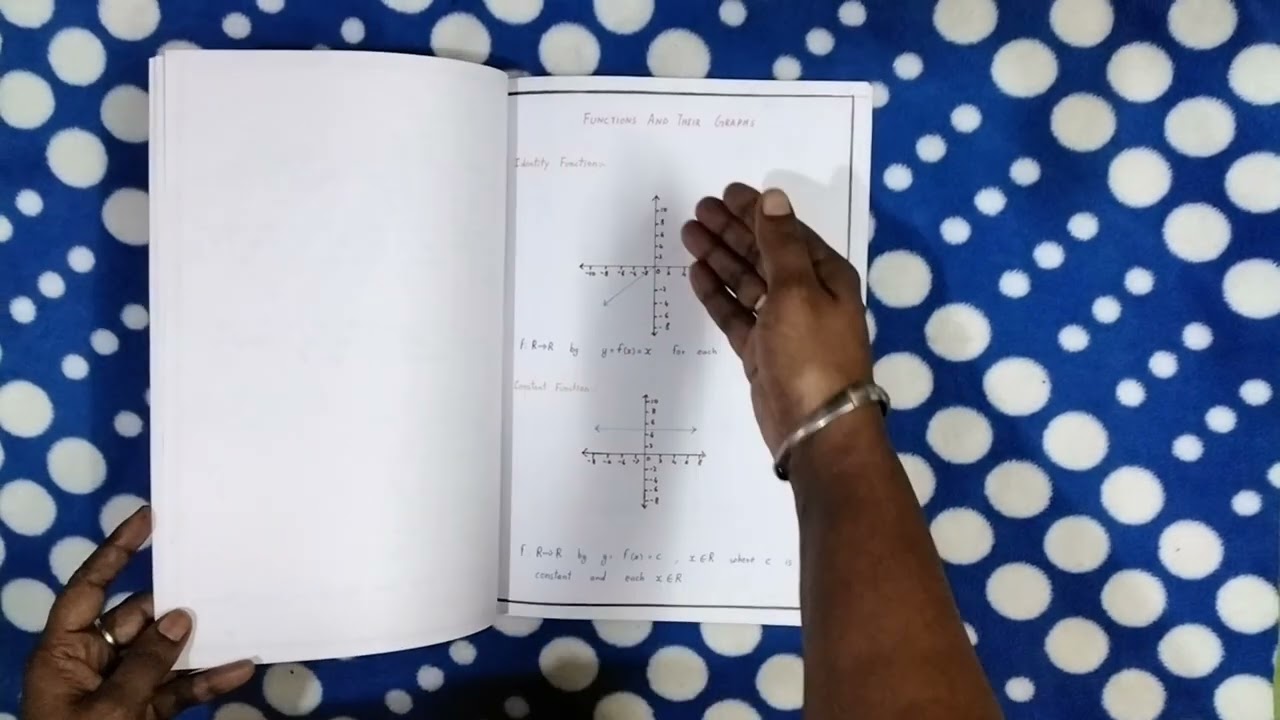 FUNCTIONS AND THEIR GRAPHS
Identity Function:-
f: R→R by y = f(x) = x for each
Constant Function:-
f: R→R by y = f(x) = c , x ∈ R where c is
constant and each x ∈ R